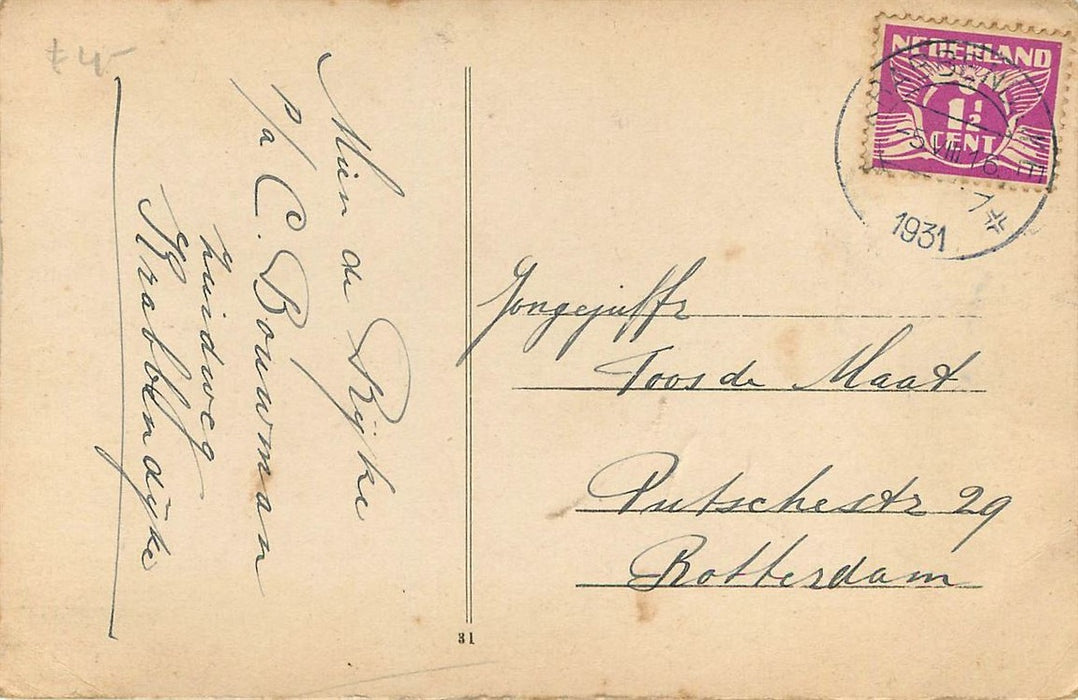 ƒ 4,-
Mien de Rijke
p/a C. Bouwman
Zuidweg
Krabbendijke
NEDERLAND
1½
CENT
KRABBENDIJKE
5 VIII 16
1931
Jongejuffr
Toos de Maat
Putschestr 29
Rotterdam
31